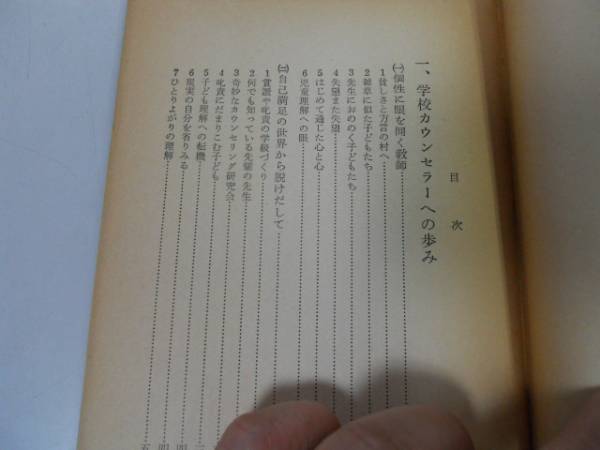 目次
一、学校カウンセラーへの歩み
㈠個性に眼を開く教師
1貧しさと方言の村へ
2雑草に似た子どもたち
3先生におののく子どもたち
4失望また失望
5はじめて通じた心と心
6児童理解への眼
㈡自己満足の世界から脱けだして
1賞讃や叱責の学級づくり
2何でも知っている先輩の先生
3奇妙なカウンセリング研究会
4叱責にだまりこむ子ども
5子ども理解への転機
6現実の自分を省りみる
7ひとりよがりの理解